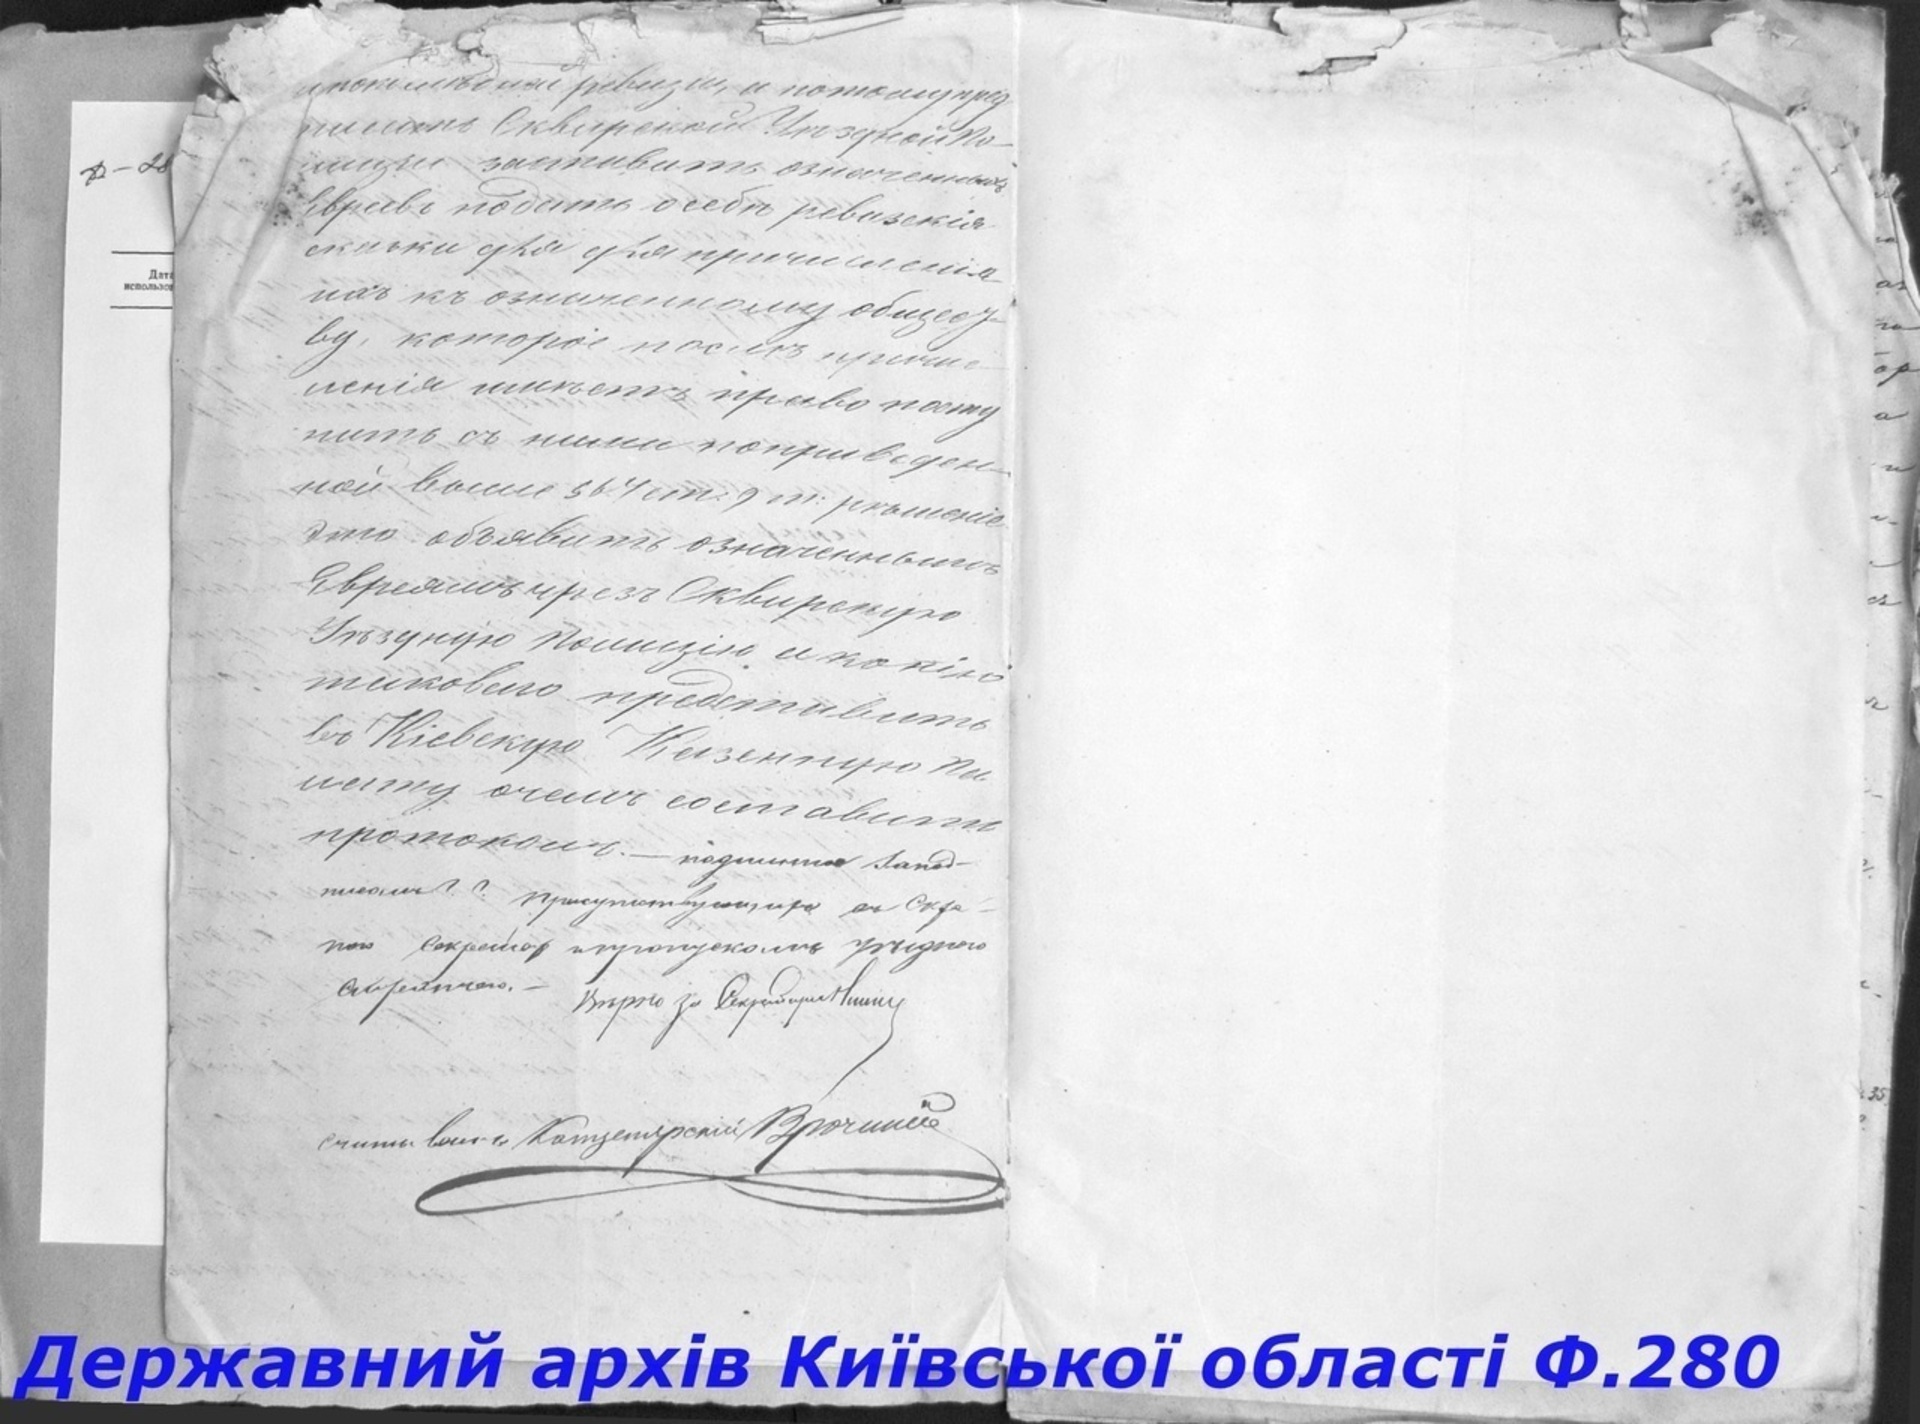 ф-28
Дата
использов
ревизіи, и потому пред
писать Сквирской Уѣздной По-
лиціи заставить означенныхъ
Евреевъ подать особѣ ревизскія
скаски для для причисленія
ихъ къ означенному общест-
ву, которое послѣ причис-
ленія имѣетъ право посту
пить съ ними по приведен-
ной выше 564 ст. 9 т: рѣшеніе
это объявить означеннымъ
Евреямъ чрезъ Сквирскую
Уѣздную Полицію и копію
таковаго представить
въ Кіевскую Казенную Па-
лату о чемъ составить
протоколъ. — подлинное
Присутствующіе съ
Секретар
Вѣрно за Секретаря
считывалъ Канцелярскій
35
Державний архів Київської області Ф.280